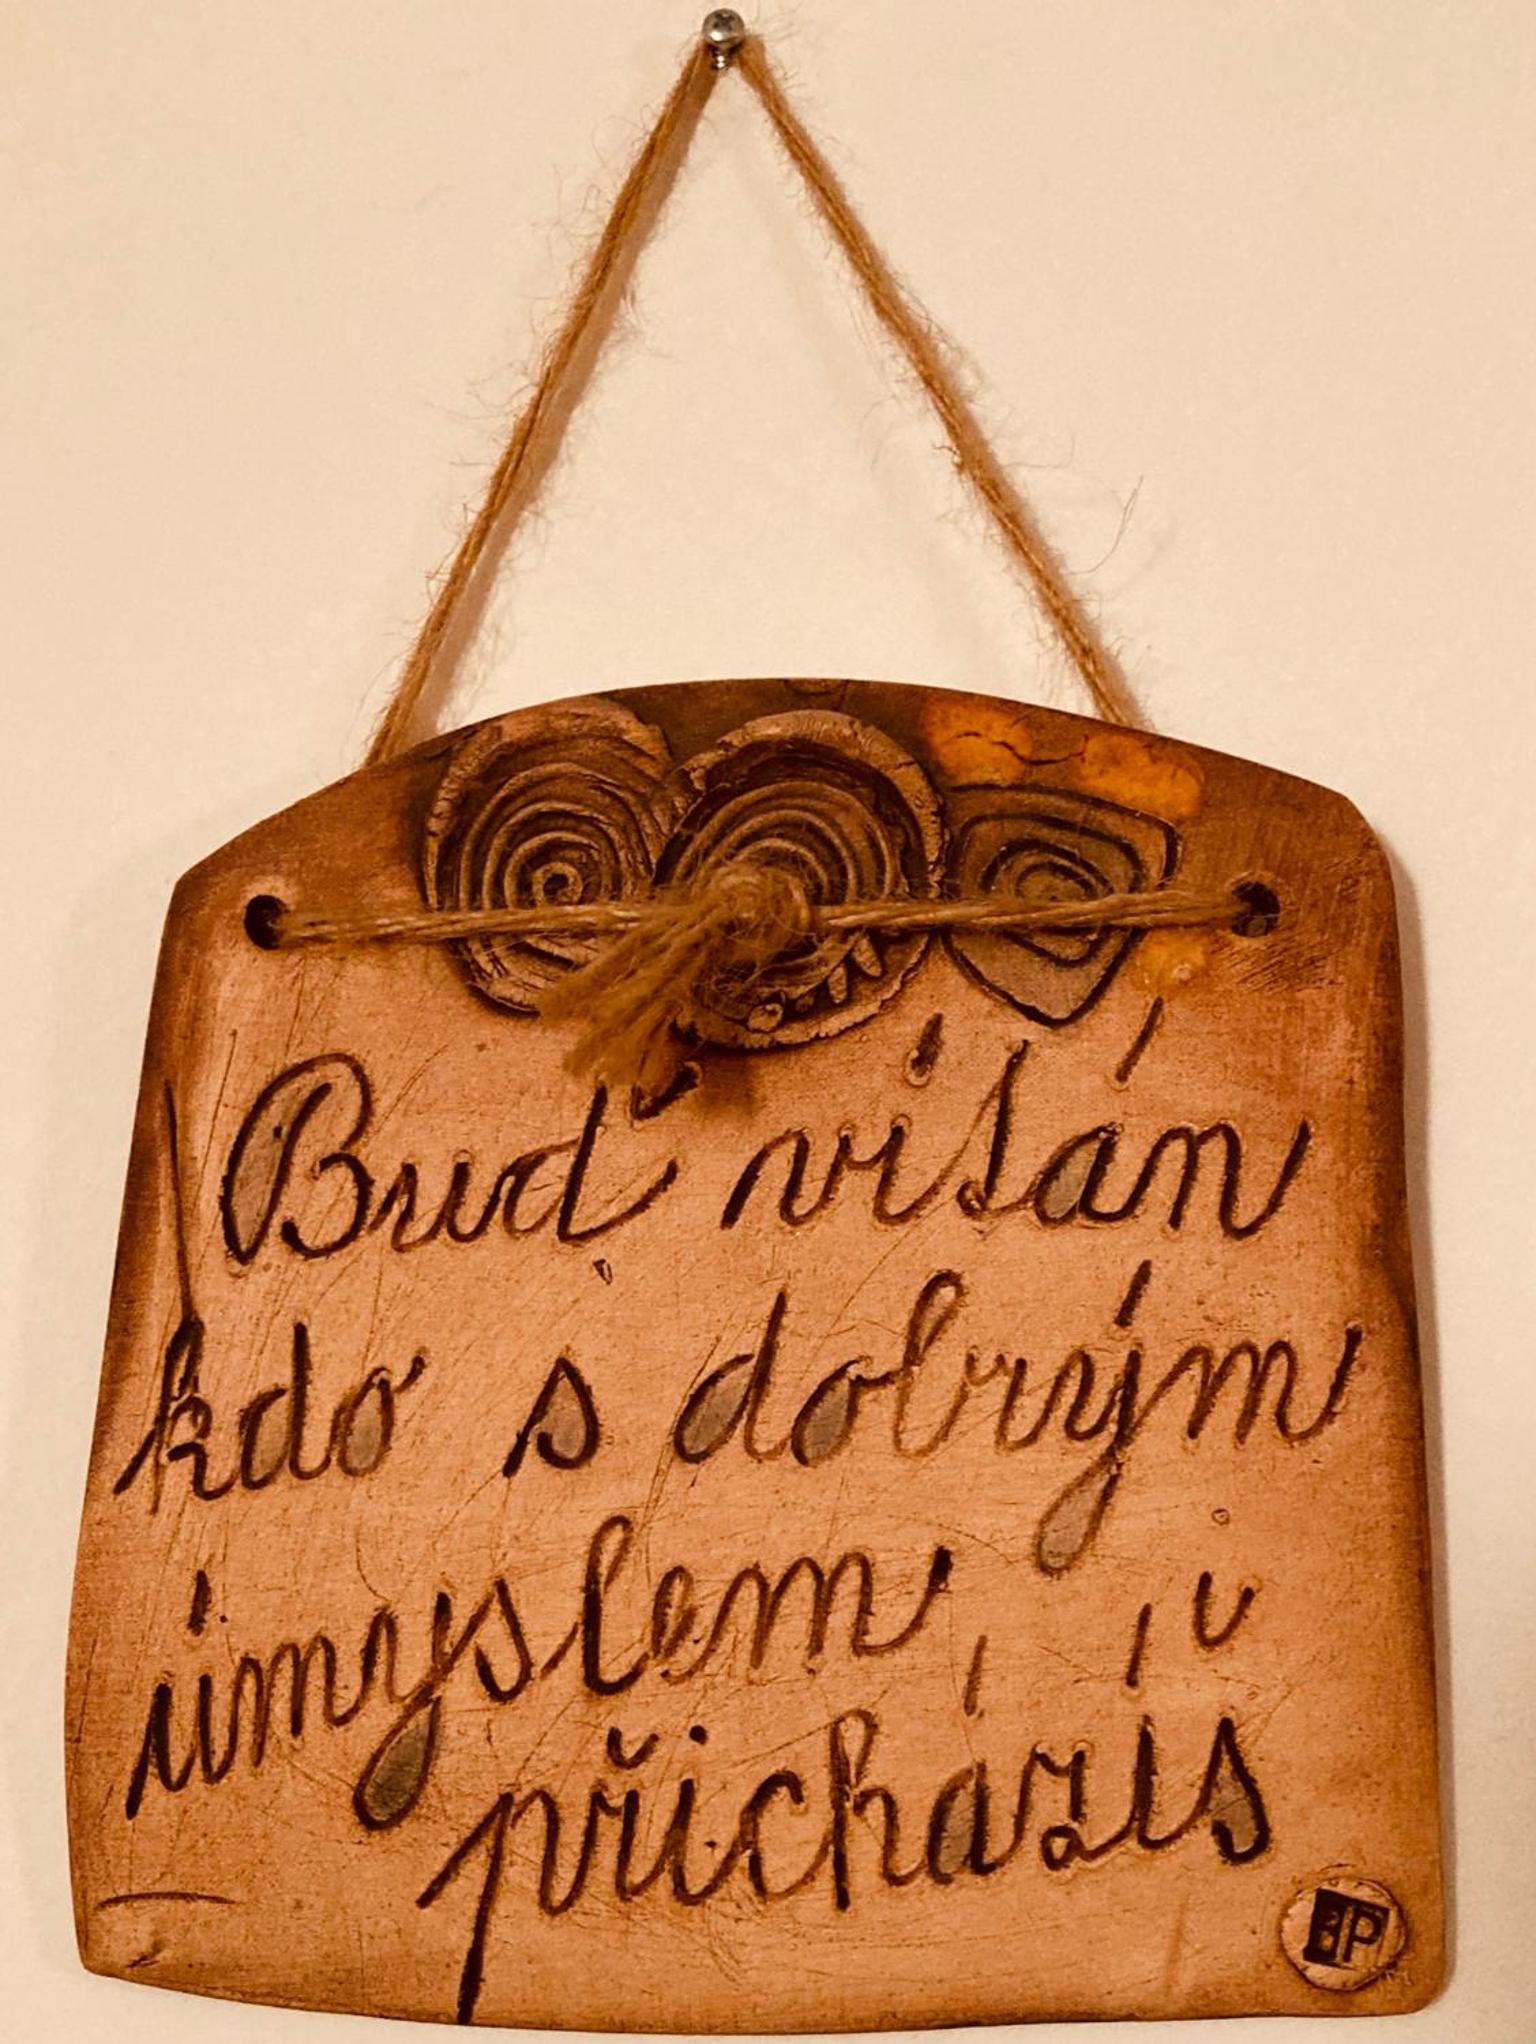 Buď vítán
kdo s dobrým
úmyslem,
přicházíš